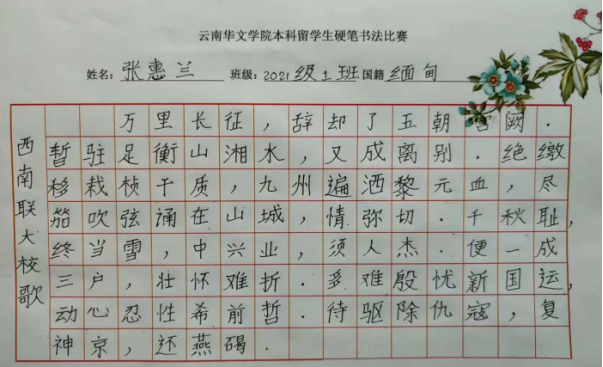 云南华文学院本科留学生硬笔书法比赛
姓名：张惠兰 班级：2021级1班 国籍 缅甸
西南联大校歌
万里长征，辞却了五朝宫阙．
暂驻足衡山湘水，又成离别．绝缴
移栽桢干质，九州遍洒黎元血，尽
笳吹弦涌在山城，情弥切．千秋耻，
终当雪，中兴业，须人杰．便一成
三户，壮怀难折．多难殷忧新国运，
动心忍性希前哲．待驱除仇寇，复
神京，还燕碣．